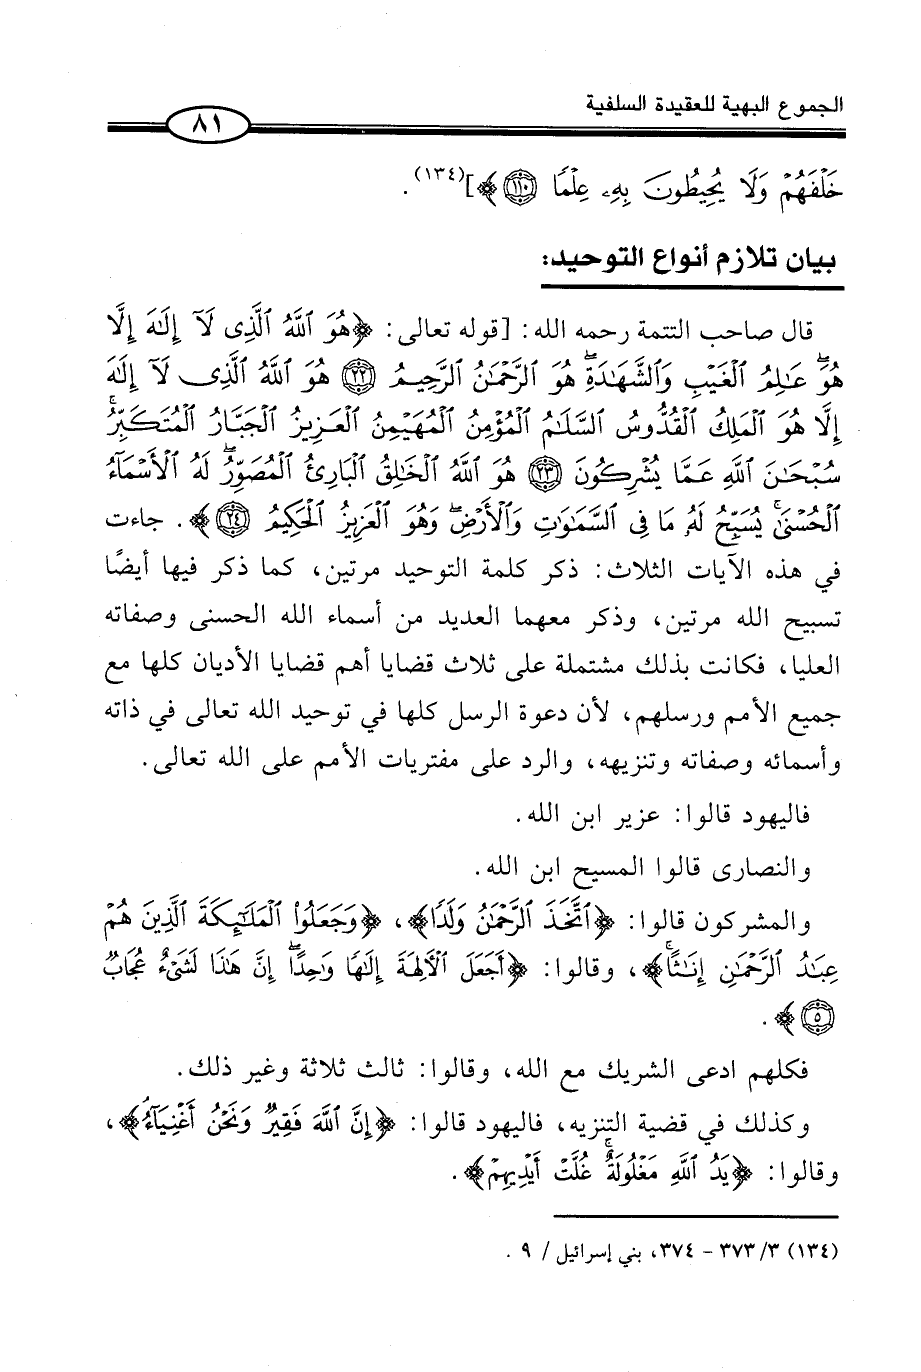 الجموع البهية للعقيدة السلفية
٨١
خَلْفَهُمْ وَلَا يُحِيطُونَ بِهِۦ عِلْمًا ﴿١١٠﴾](١٣٤).
بيان تلازم أنواع التوحيد:
قال صاحب التتمة رحمه الله: [قوله تعالى: ﴿هُوَ ٱللَّهُ ٱلَّذِى لَآ إِلَٰهَ إِلَّا
هُوَۖ عَٰلِمُ ٱلْغَيْبِ وَٱلشَّهَٰدَةِۖ هُوَ ٱلرَّحْمَٰنُ ٱلرَّحِيمُ ﴿٢٢﴾ هُوَ ٱللَّهُ ٱلَّذِى لَآ إِلَٰهَ
إِلَّا هُوَ ٱلْمَلِكُ ٱلْقُدُّوسُ ٱلسَّلَٰمُ ٱلْمُؤْمِنُ ٱلْمُهَيْمِنُ ٱلْعَزِيزُ ٱلْجَبَّارُ ٱلْمُتَكَبِّرُۚ
سُبْحَٰنَ ٱللَّهِ عَمَّا يُشْرِكُونَ ﴿٢٣﴾ هُوَ ٱللَّهُ ٱلْخَٰلِقُ ٱلْبَارِئُ ٱلْمُصَوِّرُۖ لَهُ ٱلْأَسْمَآءُ
ٱلْحُسْنَىٰۚ يُسَبِّحُ لَهُۥ مَا فِى ٱلسَّمَٰوَٰتِ وَٱلْأَرْضِۖ وَهُوَ ٱلْعَزِيزُ ٱلْحَكِيمُ ﴿٢٤﴾﴾. جاءت
في هذه الآيات الثلاث: ذكر كلمة التوحيد مرتين، كما ذكر فيها أيضًا
تسبيح الله مرتين، وذكر معهما العديد من أسماء الله الحسنى وصفاته
العليا، فكانت بذلك مشتملة على ثلاث قضايا أهم قضايا الأديان كلها مع
جميع الأمم ورسلهم، لأن دعوة الرسل كلها في توحيد الله تعالى في ذاته
وأسمائه وصفاته وتنزيهه، والرد على مفتريات الأمم على الله تعالى.
فاليهود قالوا: عزير ابن الله.
والنصارى قالوا المسيح ابن الله.
والمشركون قالوا: ﴿ٱتَّخَذَ ٱلرَّحْمَٰنُ وَلَدًا﴾، ﴿وَجَعَلُوا۟ ٱلْمَلَٰٓئِكَةَ ٱلَّذِينَ هُمْ
عِبَٰدُ ٱلرَّحْمَٰنِ إِنَٰثًاۚ﴾، وقالوا: ﴿أَجَعَلَ ٱلْءَالِهَةَ إِلَٰهًا وَٰحِدًاۖ إِنَّ هَٰذَا لَشَىْءٌ عُجَابٌ
﴿٥﴾﴾.
فكلهم ادعى الشريك مع الله، وقالوا: ثالث ثلاثة وغير ذلك.
وكذلك في قضية التنزيه، فاليهود قالوا: ﴿إِنَّ ٱللَّهَ فَقِيرٌ وَنَحْنُ أَغْنِيَآءُ﴾،
وقالوا: ﴿يَدُ ٱللَّهِ مَغْلُولَةٌۚ غُلَّتْ أَيْدِيهِمْ﴾.
(١٣٤) ٣/ ٣٧٣ - ٣٧٤، بني إسرائيل / ٩ .